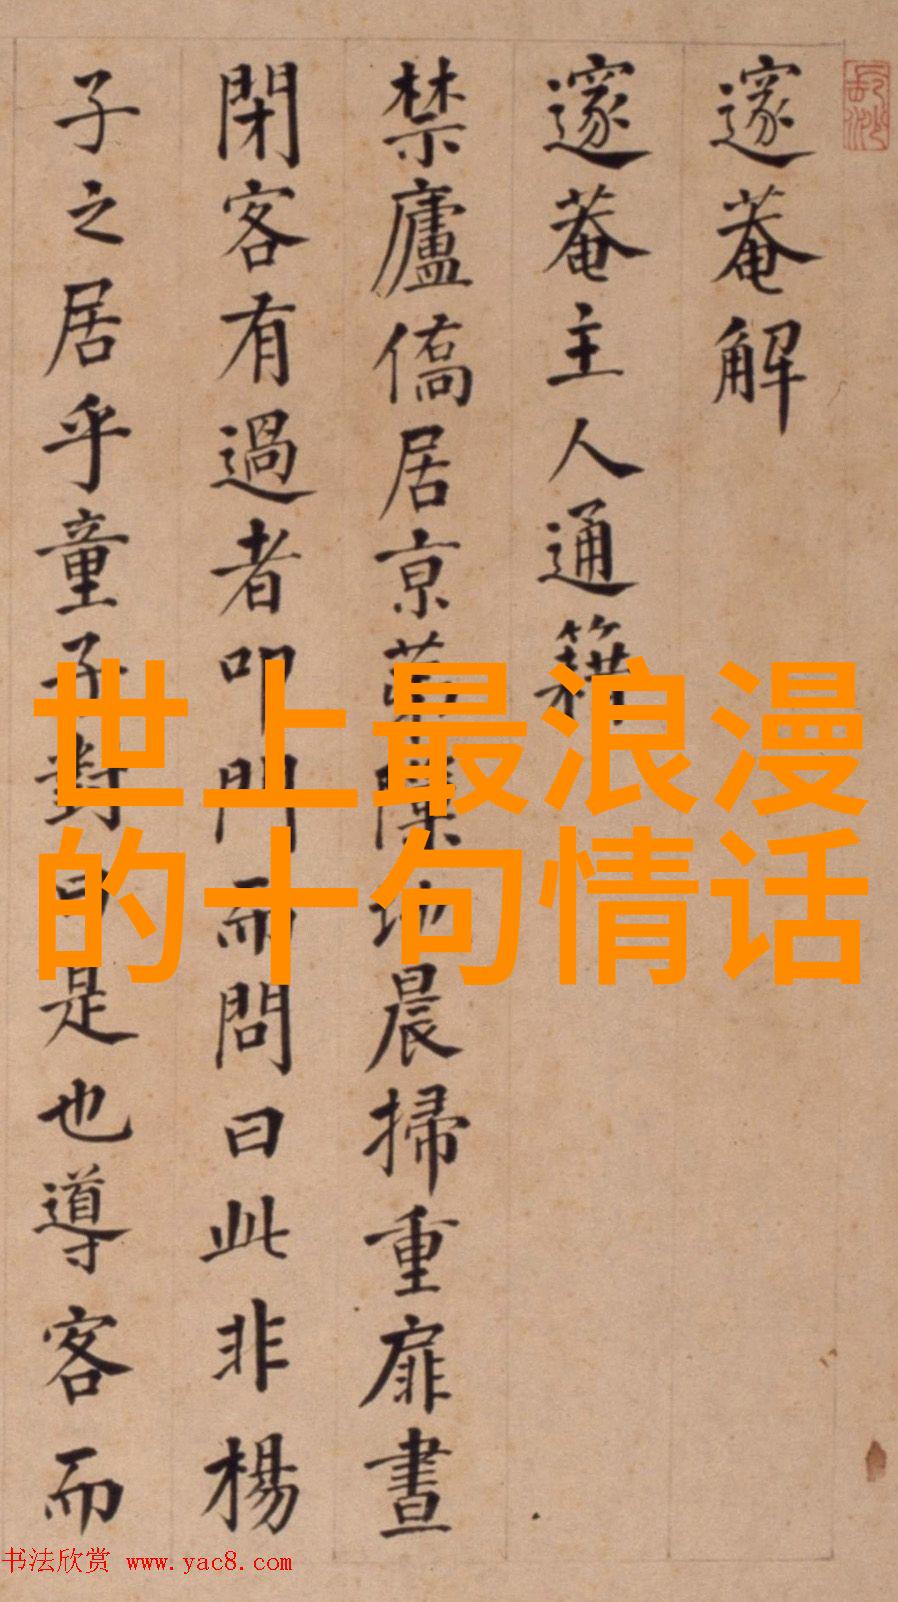 邃菴解
邃菴主人通籍
禁廬僑居京
地晨掃重扉晝
閉客有過者叩門而問曰此非楊
子之居乎童子對曰是也導客而
世上最浪漫
的十句情话
书法欣赏 www.yac8.com